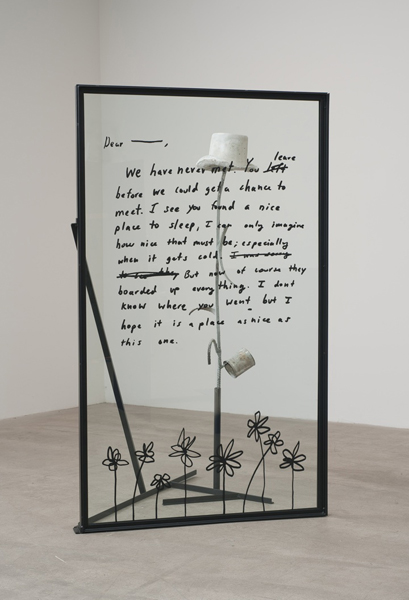 Dear ____,
leave
We have never met. You left
before we could get a chance to
meet. I see you found a nice
place to sleep, I can only imagine
how nice that must be; especially
when it gets cold. I was doing
But now of course they
boarded up everything. I dont
know where you went but I
hope it is a place as nice as
this one.